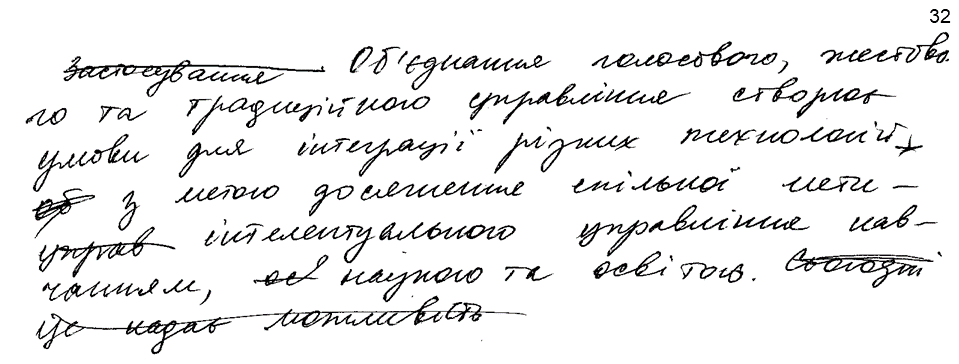 32
Застосування Об'єднання голосового, жестово-
го та традиційного управління створює
умови для інтеграції різних технологій
об з метою досягнення спільної мети –
управ інтелектуального управління нав-
чанням, ос наукою та освітою. Сьогодні
це надає можливість